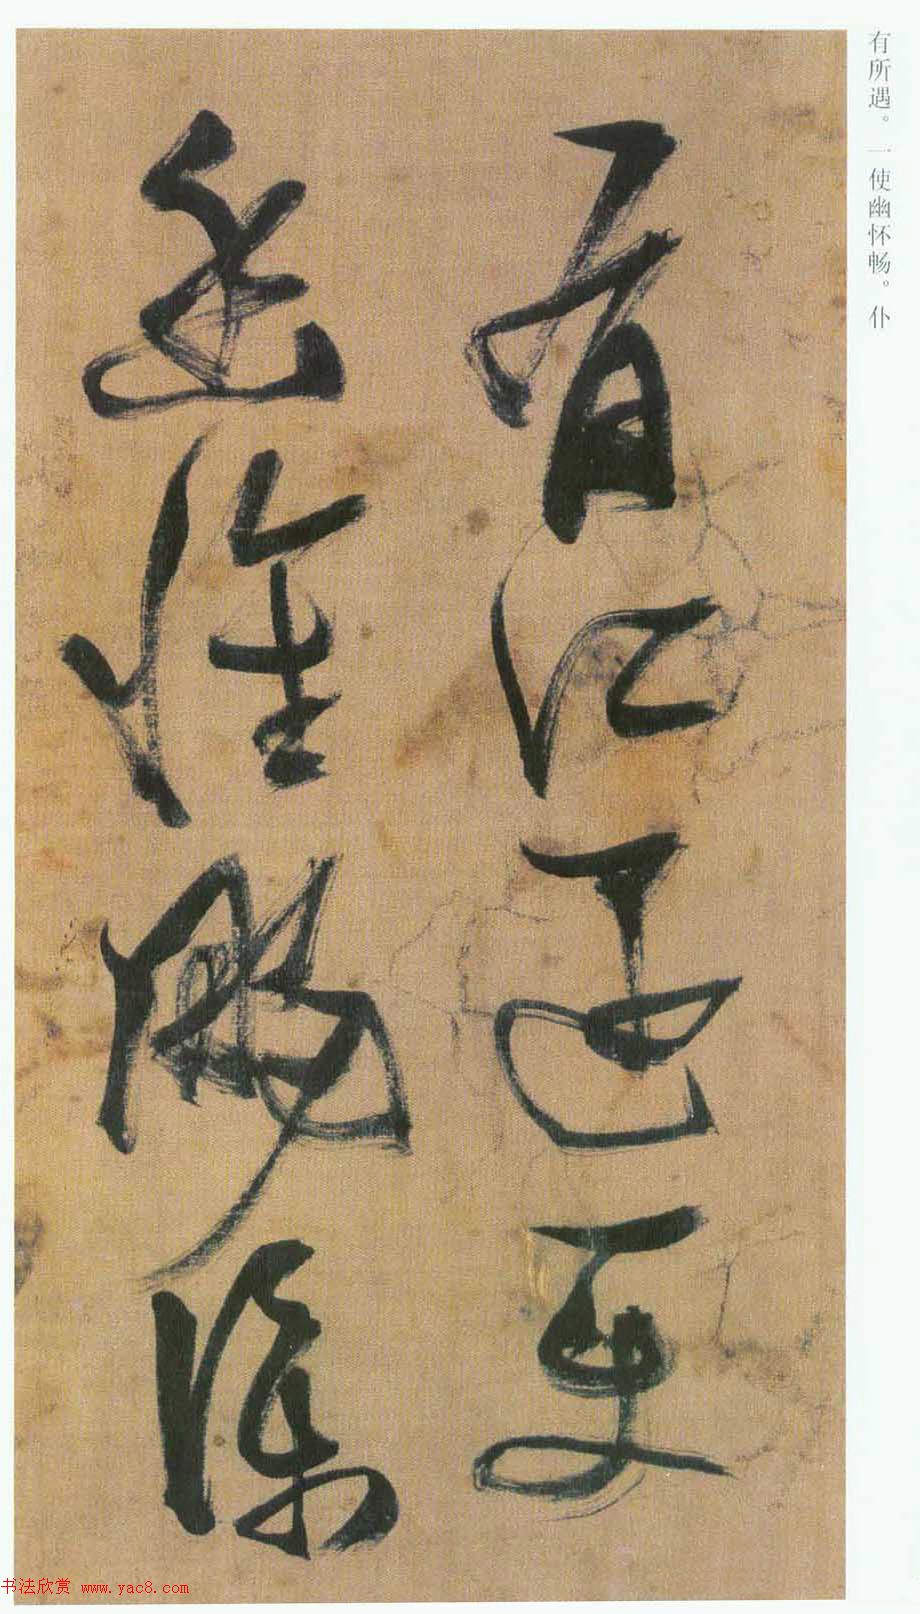 有所遇。一使幽怀畅。仆
有所遇一使
幽懷暢僕
书法欣赏 www.yac8.com